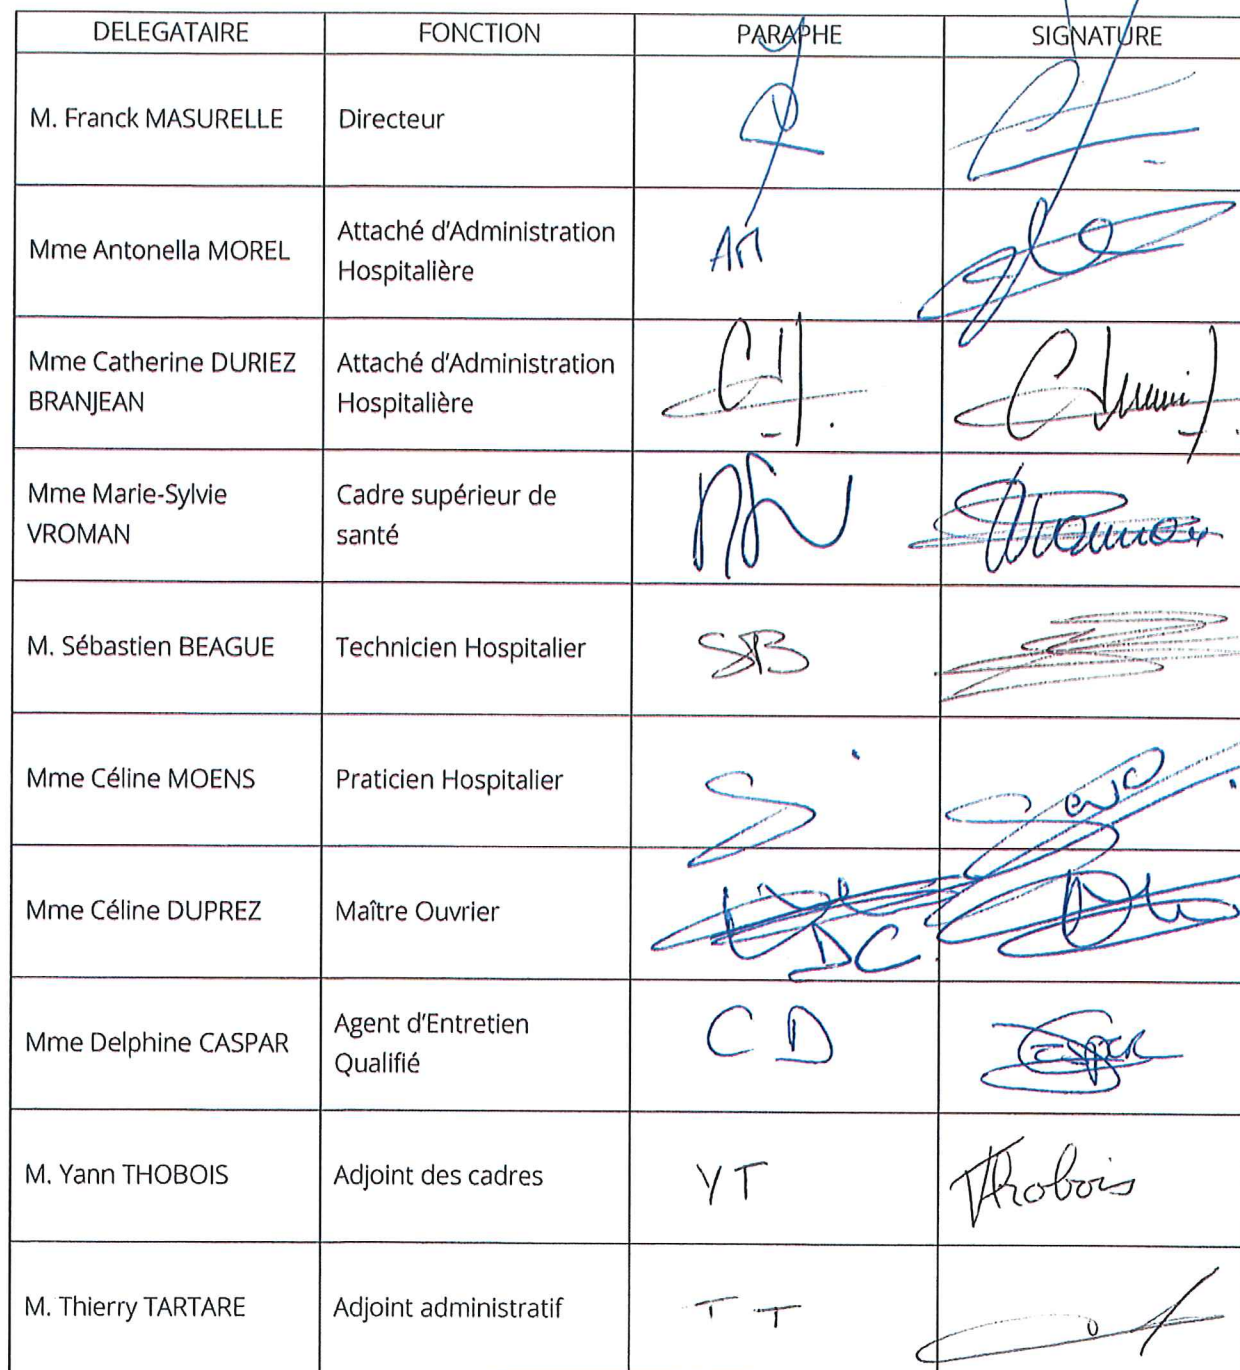 DELEGATAIRE FONCTION PARAPHE SIGNATURE
M. Franck MASURELLE Directeur
Mme Antonella MOREL Attaché d'Administration Hospitalière AM
Mme Catherine DURIEZ BRANJEAN Attaché d'Administration Hospitalière
Mme Marie-Sylvie VROMAN Cadre supérieur de santé
M. Sébastien BEAGUE Technicien Hospitalier SB
Mme Céline MOENS Praticien Hospitalier
Mme Céline DUPREZ Maître Ouvrier DC
Mme Delphine CASPAR Agent d'Entretien Qualifié CD
M. Yann THOBOIS Adjoint des cadres YT Thobois
M. Thierry TARTARE Adjoint administratif TT